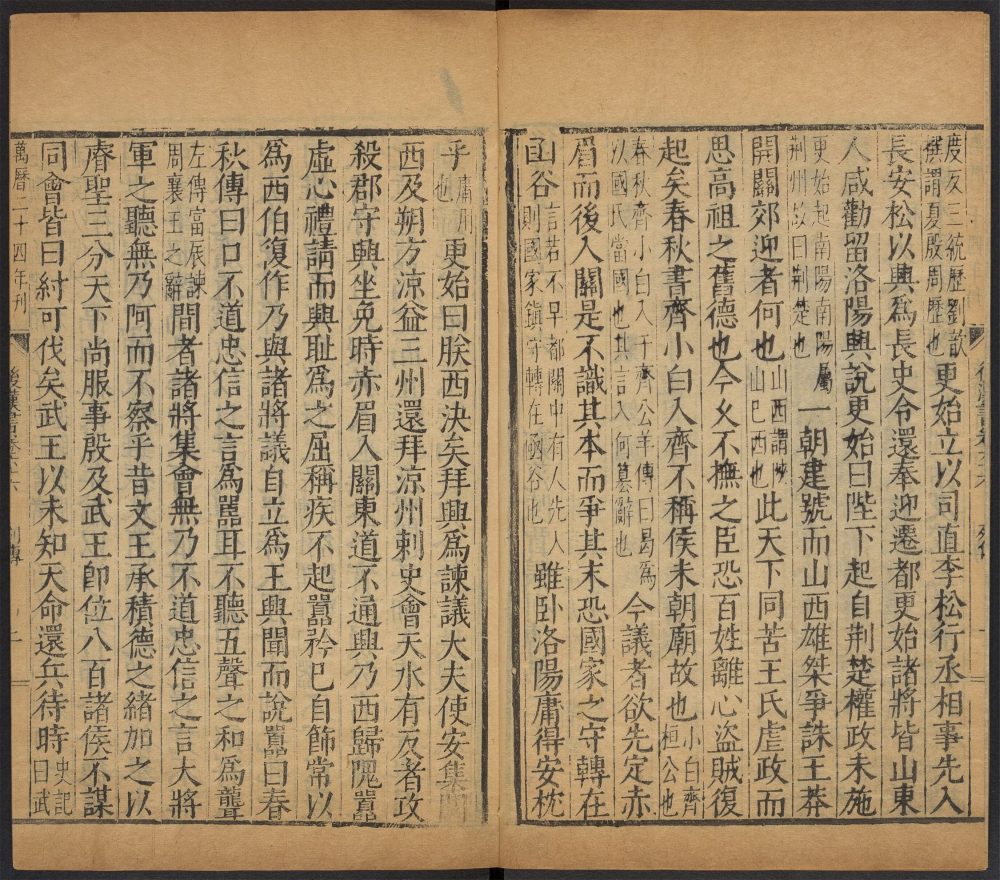 度及三統歷劉歆
撰謂夏殷周歷也
更始立以司直李松行丞相事先入
長安松以興爲長史令還奉迎遷都更始諸將皆山東
人咸勸留洛陽興說更始曰陛下起自荆楚權政未施
更始起南陽南陽屬
荆州故曰荆楚也
一朝建號而山西雄桀爭誅王莽
開關郊迎者何也
山西謂陜
山巳西也
此天下同苦王氏虐政而
思高祖之舊德也今乆不撫之臣恐百姓離心盗賊復
起矣春秋書齊小白入齊不稱侯未朝廟故也
小白齊
桓公也
春秋齊小白入于齊公羊傳曰曷爲
以國氏當國也其言入何簒辭也
今議者欲先定赤
眉而後入關是不識其本而爭其末恐國家之守轉在
函谷
言若不早都關中有人先入
則國家鎮守轉在函谷也
雖卧洛陽庸得安枕
乎
庸用
也
更始曰朕西決矣拜興爲諫議大夫使安集關
西及朔方涼益三州還拜涼州刺史會天水有反者攻
殺郡守興坐免時赤眉入關東道不通興乃西歸隗囂
虚心禮請而興恥爲之屈稱疾不起囂矜巳自飾常以
爲西伯復作乃與諸將議自立爲王興聞而說囂曰春
秋傳曰口不道忠信之言爲嚚耳不聽五聲之和爲聾
左傳富辰諫
周襄王之辭
間者諸將集會無乃不道忠信之言大將
軍之聽無乃阿而不察乎昔文王承積德之緒加之以
睿聖三分天下尚服事殷及武王即位八百諸侯不謀
同會皆曰紂可伐矣武王以未知天命還兵待時
史記
曰武
萬曆二十四年刊
後漢書卷六十六
列傳